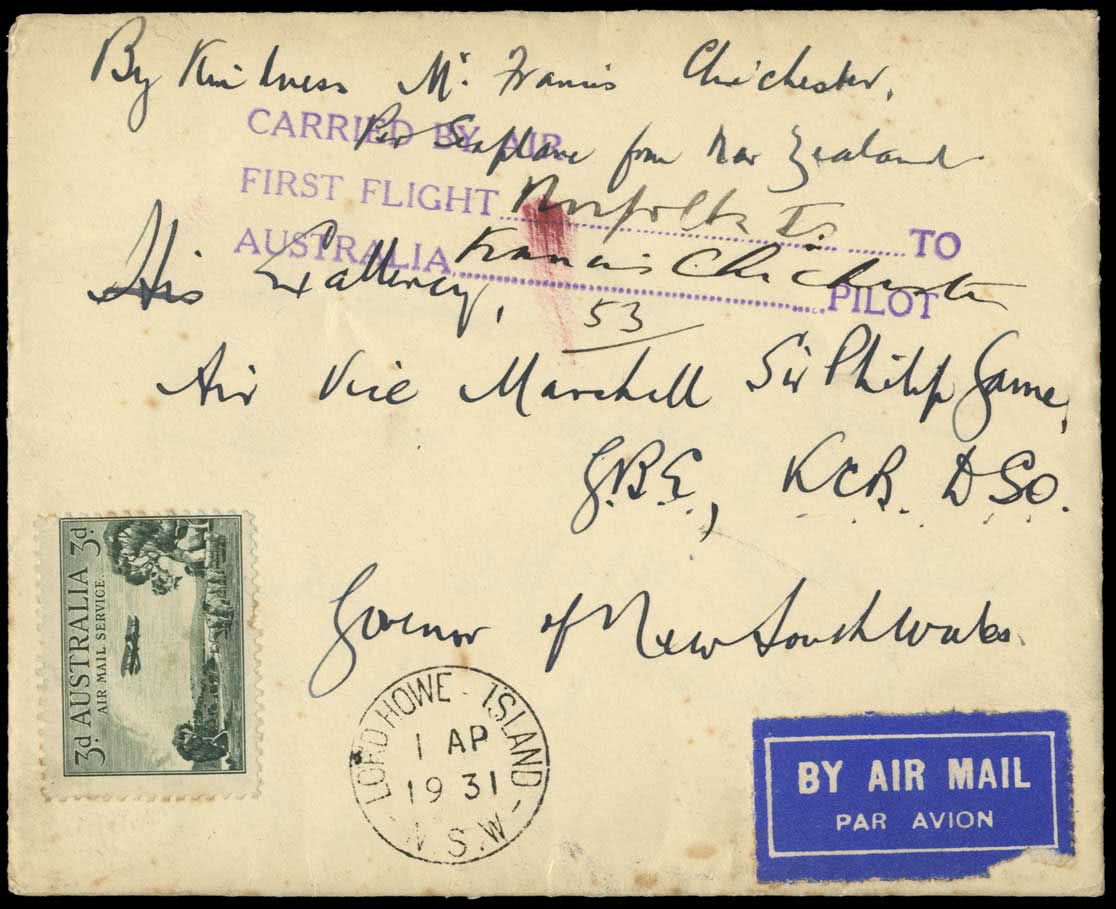 By Kindness Mr. Francis Chichester,
CARRIED BY AIR
Per Seaplane from New Zealand
FIRST FLIGHT Norfolk Is. TO
AUSTRALIA Francis Chichester PILOT
His Excellency,
53
Air Vice Marshall Sir Philip Game,
G.B.E., K.C.B. D.S.O.
Governor of New South Wales.
3d AUSTRALIA 3d
AIR MAIL SERVICE.
LORD HOWE ISLAND
1 AP
19 31
N.S.W
BY AIR MAIL
PAR AVION